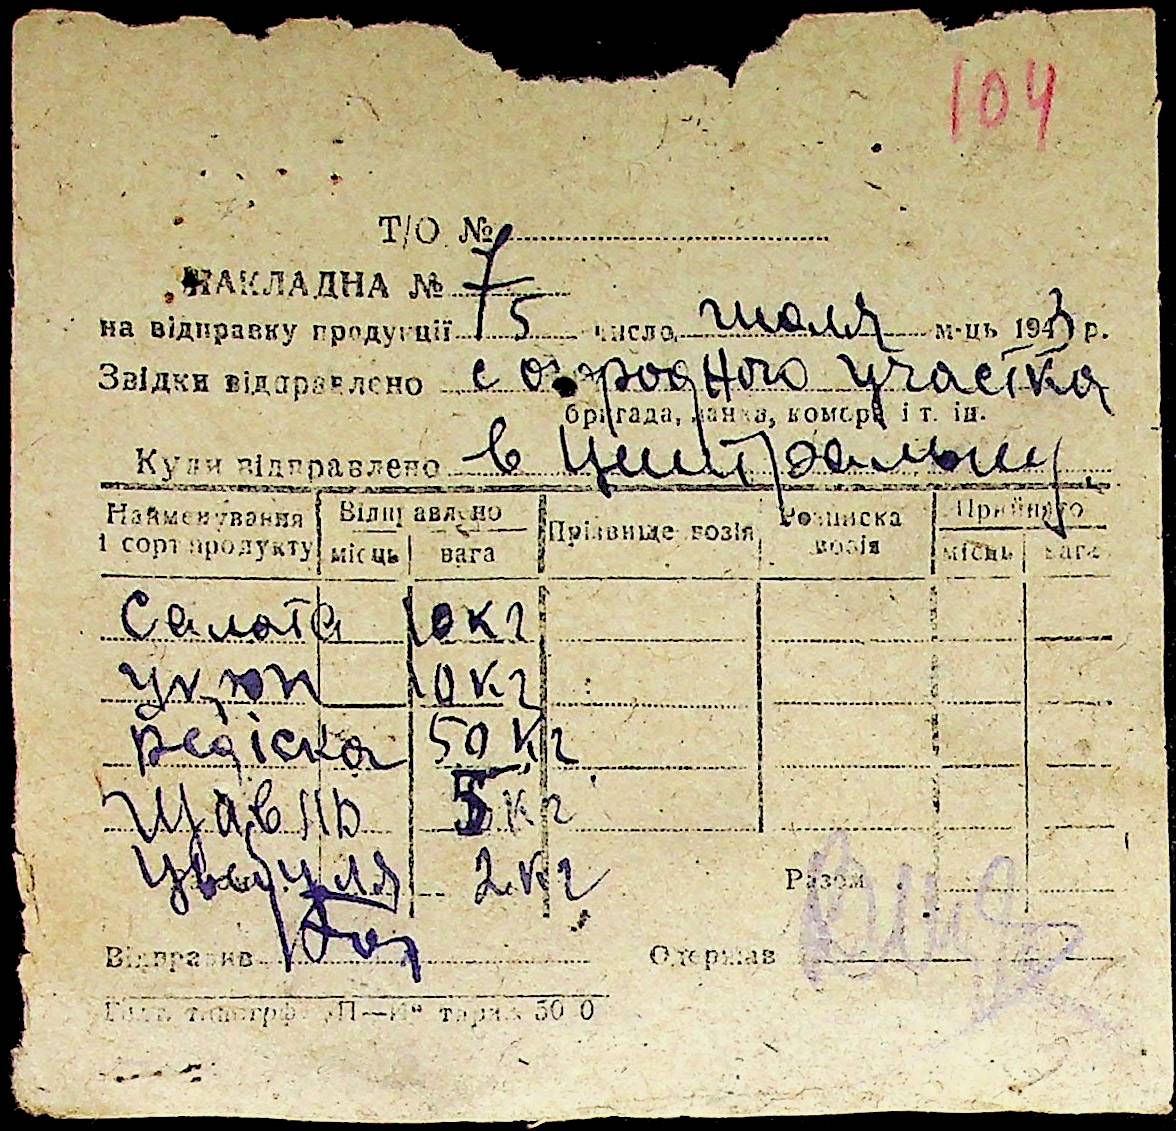 104
Т/О №
НАКЛАДНА № 7
на відправку продукції 5 число июля м-ць 1943 р.
Звідки відправлено с огородного участка
бригада, ланка, комора і т. ін.
Куди відправлено в Центральну
Найменування і сорт продукту Відправлено місць вага Прізвище возія Розписка возія Прийнято місць вага
Салата 10 кг
укроп 10 кг
редіска 50 кг
Щавль 5 кг
Цыбуля 2 кг
Разом
Відправив Одержав
тираж